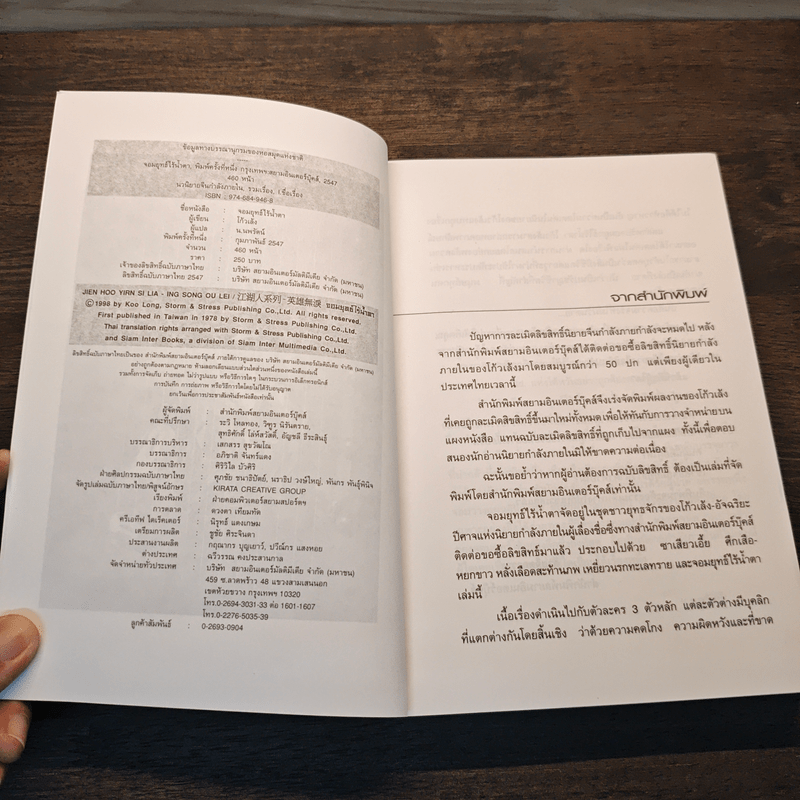 ข้อมูลทางบรรณานุกรมของหอสมุดแห่งชาติ
จอมยุทธ์ไร้น้ำตา, พิมพ์ครั้งที่หนึ่ง กรุงเทพฯ:สยามอินเตอร์บุ๊คส์, 2547
460 หน้า
นวนิยายจีนกำลังภายใน, รวมเรื่อง, I.ชื่อเรื่อง
ISBN : 974-684-946-8
ชื่อหนังสือ : จอมยุทธ์ไร้น้ำตา
ผู้เขียน : โก้วเล้ง
ผู้แปล : น.นพรัตน์
พิมพ์ครั้งที่หนึ่ง : กุมภาพันธ์ 2547
จำนวน : 460 หน้า
ราคา : 250 บาท
เจ้าของลิขสิทธิ์ภาษาไทย : บริษัท สยามอินเตอร์มัลติมีเดีย จำกัด (มหาชน)
ลิขสิทธิ์ฉบับภาษาไทย 2547 : บริษัท สยามอินเตอร์มัลติมีเดีย จำกัด (มหาชน)
JIEN HOO YIRN SI LIA - ING SONG OU LEI / 江湖人系列 - 英雄無淚 จอมยุทธ์ไร้น้ำตา
©1998 by Koo Long, Storm & Stress Publishing Co.,Ltd. All rights reserved.
First published in Taiwan in 1978 by Storm & Stress Publishing Co.,Ltd.
Thai translation rights arranged with Storm & Stress Publishing Co.,Ltd.
and Siam Inter Books, a division of Siam Inter Multimedia Co.,Ltd.
ลิขสิทธิ์ฉบับภาษาไทยเป็นของ สำนักพิมพ์สยามอินเตอร์บุ๊คส์ ภายใต้การดูแลของ บริษัท สยามอินเตอร์มัลติมีเดีย จำกัด (มหาชน)
อย่างถูกต้องตามกฎหมาย ห้ามลอกเลียนแบบส่วนใดส่วนหนึ่งของหนังสือเล่มนี้
รวมทั้งการจัดเก็บ ถ่ายทอด ไม่ว่ารูปแบบ หรือวิธีการใดๆ ในกระบวนการอิเล็กทรอนิกส์
การบันทึก การถ่ายภาพ หรือวิธีการใดโดยไม่ได้รับอนุญาต
ยกเว้นเพื่อการประชาสัมพันธ์หนังสือเท่านั้น
ผู้จัดพิมพ์ : สำนักพิมพ์สยามอินเตอร์บุ๊คส์
คณะที่ปรึกษา : ระวิ โหลทอง, วิฑูร นิรันตราย,
สุทธิศักดิ์ โล่ห์สวัสดิ์, อัญชลี ธีระสินธุ์
บรรณาธิการบริหาร : เสกสรร สุขวัฒโน
บรรณาธิการ : อภิชาติ จันทร์แดง
กองบรรณาธิการ : ศิริวิไล บัวศิริ
ฝ่ายศิลปกรรมฉบับภาษาไทย : ศุภชัย ชนาธิปัตย์, นราธิป วงษ์ใหญ่, พันกร พันธุ์พินิจ
จัดรูปเล่มฉบับภาษาไทย/พิสูจน์อักษร : KIRATA CREATIVE GROUP
เรียงพิมพ์ : ฝ่ายคอมพิวเตอร์สยามสปอร์ตฯ
การตลาด : ดวงตา เทียมทัด
ครีเอทีฟ ไดเร็คเตอร์ : นิรุทธ์ แดงเกษม
เตรียมการผลิต : ชูชัย ศิระจินดา
ประสานงานผลิต : กฤณากร บุญเยาว์, ปวีณ์กร แสงหอย
ต่างประเทศ : ฉวีวรรณ คงประสานกาล
จัดจำหน่ายทั่วประเทศ : บริษัท สยามอินเตอร์มัลติมีเดีย จำกัด (มหาชน)
459 ซ.ลาดพร้าว 48 แขวงสามเสนนอก
เขตห้วยขวาง กรุงเทพฯ 10320
โทร.0-2694-3031-33 ต่อ 1601-1607
โทร.0-2276-5035-39
ลูกค้าสัมพันธ์ : 0-2693-0904
จากสำนักพิมพ์
ปัญหาการละเมิดลิขสิทธิ์นิยายจีนกำลังภายกำลังจะหมดไป หลัง
จากสำนักพิมพ์สยามอินเตอร์บุ๊คส์ได้ติดต่อขอซื้อลิขสิทธิ์นิยายกำลัง
ภายในของโก้วเล้งมาโดยสมบูรณ์กว่า 50 ปก แต่เพียงผู้เดียวใน
ประเทศไทยเวลานี้
สำนักพิมพ์สยามอินเตอร์บุ๊คส์จึงเร่งจัดพิมพ์ผลงานของโก้วเล้ง
ที่เคยถูกละเมิดลิขสิทธิ์ขึ้นมาใหม่ทั้งหมดเพื่อให้ทันกับการวางจำหน่ายบน
แผงหนังสือ แทนฉบับละเมิดลิขสิทธิ์ที่ถูกเก็บไปจากแผง ทั้งนี้เพื่อตอบ
สนองนักอ่านนิยายกำลังภายในมิให้ขาดความต่อเนื่อง
ฉะนั้นขอย้ำว่าหากผู้อ่านต้องการฉบับลิขสิทธิ์ ต้องเป็นเล่มที่จัด
พิมพ์โดยสำนักพิมพ์สยามอินเตอร์บุ๊คส์เท่านั้น
จอมยุทธ์ไร้น้ำตาจัดอยู่ในชุดชาวยุทธจักรของโก้วเล้ง-อัจฉริยะ
ปีศาจแห่งนิยายกำลังภายในผู้เลื่องชื่อซึ่งทางสำนักพิมพ์สยามอินเตอร์บุ๊คส์
ติดต่อขอซื้อลิขสิทธิ์มาแล้ว ประกอบไปด้วย ซาเสียวเอี้ย ศึกเสือ-
หยกขาว หลั่งเลือดสะท้านภพ เหยี่ยวนรกทะเลทราย และจอมยุทธ์ไร้น้ำตา
เล่มนี้
เนื้อเรื่องดำเนินไปกับตัวละคร 3 ตัวหลัก แต่ละตัวต่างมีบุคลิก
ที่แตกต่างกันโดยสิ้นเชิง ว่าด้วยความคดโกง ความผิดหวังและที่ขาด